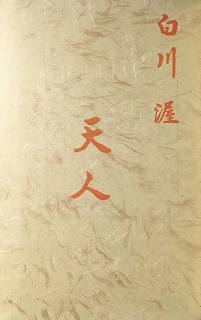 白川渥
天人